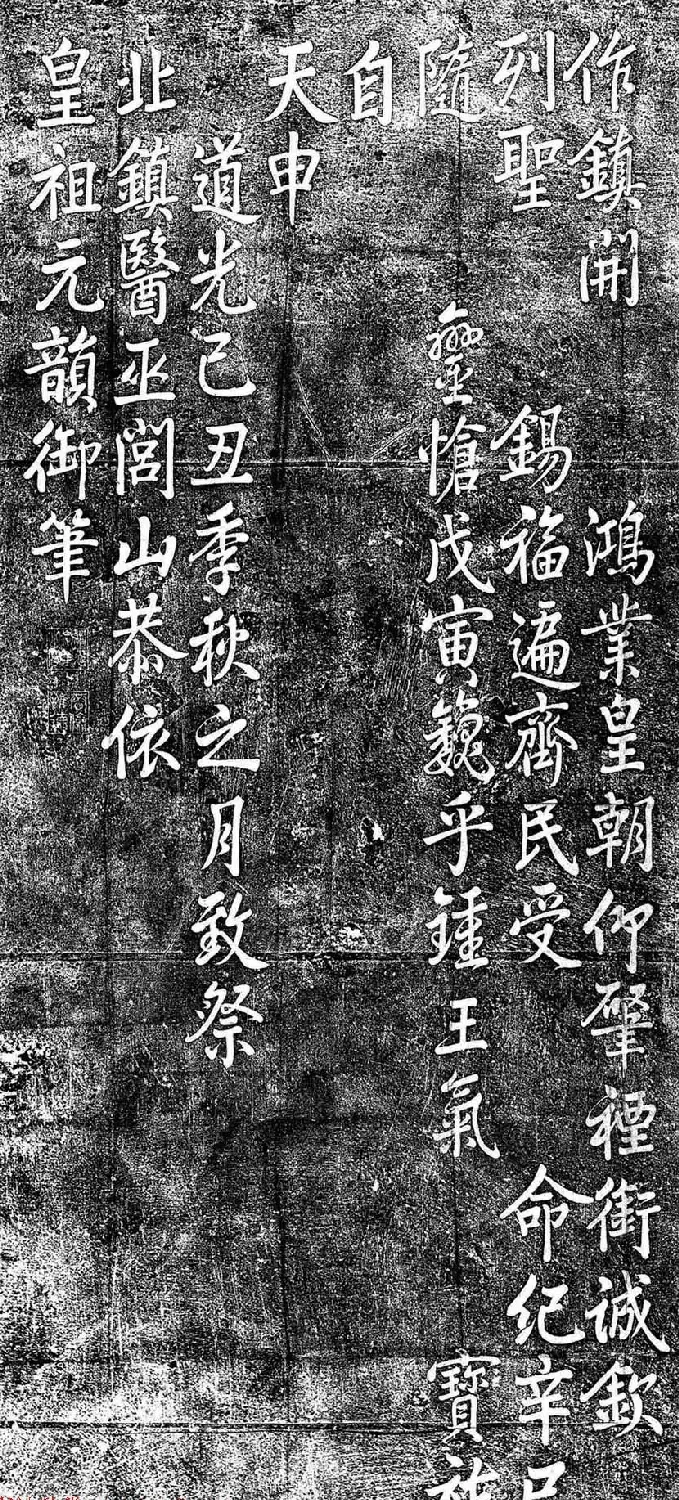 作鎮開 鴻業皇朝仰肇禋銜誠欽
列聖 錫福遍齊民受 命紀辛
隨 鑾愴戊寅巍乎鍾王氣 寶
自
天申
道光己丑季秋之月致祭
北鎮醫巫閭山恭依
皇祖元韻御筆